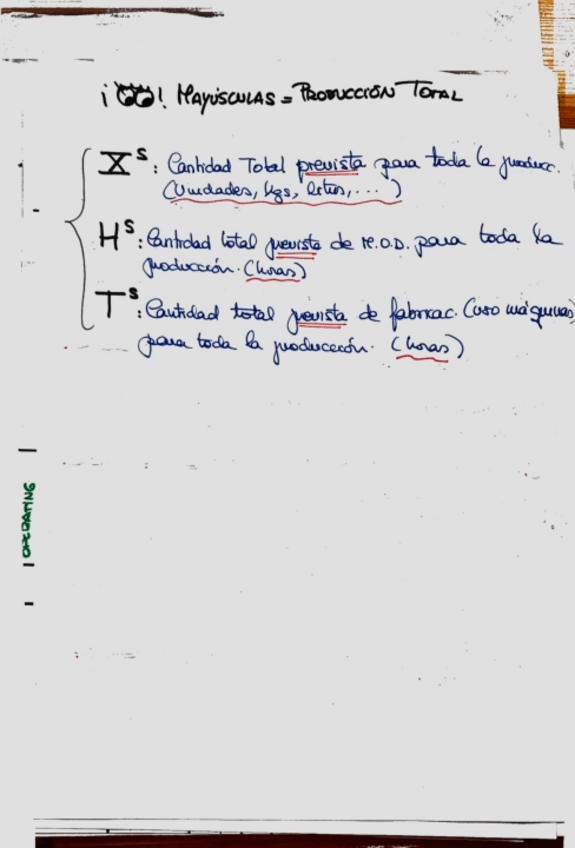 ¡ ! MAYÚSCULAS = PRODUCCIÓN TOTAL
X^S: Cantidad Total prevista para toda la producc.
(Unidades, kgs, litros, ...)
H^S: Cantidad total prevista de M.O.D. para toda la
producción. (horas)
T^S: Cantidad total prevista de fabricac. (uso máquinas)
para toda la producción. (horas)
OPERATING